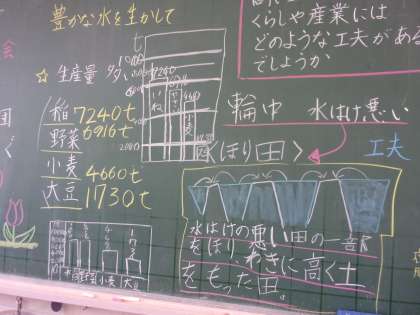 豊かな水を生かして
くらしや産業には
どのような工夫がある
でしょうか
☆ 生産量 多い
稲 7240t
野菜 6916t
小麦 4660t
大豆 1730t
t
7240
いね
やさい
小麦
輪中 水はけ悪い
<ほり田>
工夫
水はけの悪い田の一部
をほり、わきに高く土
をもった田。
野菜
小麦
大豆